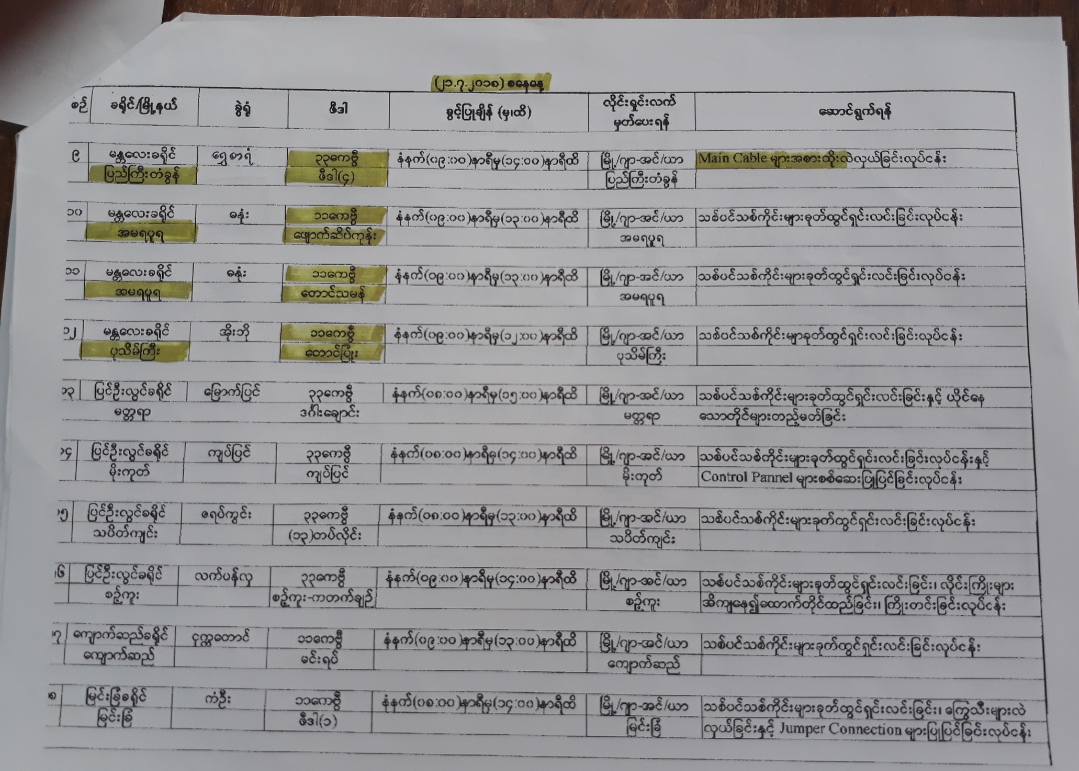 (၂၁.၇.၂၀၁၈) စနေနေ့
စဉ် ခရိုင်/မြို့နယ် ခွဲရုံ ဖီဒါ ခွင့်ပြုချိန် (မှ၊ထိ) လိုင်းရှင်းလက် ဆောင်ရွက်ရန်
မှတ်ပေးရန်
၉ မန္တလေးခရိုင် ရွှေစာရံ ၃၃ကေဗွီ နံနက်(၀၉:၀၀)နာရီမှ(၁၄:၀၀)နာရီထိ မြို့/ဂျာ-အင်/ယာ Main Cable များအစားထိုးလဲလှယ်ခြင်းလုပ်ငန်း
ပြည်ကြီးတံခွန် ဖီဒါ(၄) ပြည်ကြီးတံခွန်
၁၀ မန္တလေးခရိုင် ဓနုံး ၁၁ကေဗွီ နံနက်(၀၉:၀၀)နာရီမှ(၁၃:၀၀)နာရီထိ မြို့/ဂျာ-အင်/ယာ သစ်ပင်သစ်ကိုင်းများခုတ်ထွင်ရှင်းလင်းခြင်းလုပ်ငန်း
အမရပူရ ဖျောက်ဆိပ်ကုန်း အမရပူရ
၁၁ မန္တလေးခရိုင် ဓနုံး ၁၁ကေဗွီ နံနက်(၀၉:၀၀)နာရီမှ(၁၃:၀၀)နာရီထိ မြို့/ဂျာ-အင်/ယာ သစ်ပင်သစ်ကိုင်းများခုတ်ထွင်ရှင်းလင်းခြင်းလုပ်ငန်း
အမရပူရ တောင်သမန် အမရပူရ
၁၂ မန္တလေးခရိုင် အိုးဘို ၁၁ကေဗွီ နံနက်(၀၉:၀၀)နာရီမှ(၁၂:၀၀)နာရီထိ မြို့/ဂျာ-အင်/ယာ သစ်ပင်သစ်ကိုင်းများခုတ်ထွင်ရှင်းလင်းခြင်းလုပ်ငန်း
ပုသိမ်ကြီး တောင်ပြုံး ပုသိမ်ကြီး
၁၃ ပြင်ဦးလွင်ခရိုင် မြောက်ပြင် ၃၃ကေဗွီ နံနက်(၀၈:၀၀)နာရီမှ(၁၅:၀၀)နာရီထိ မြို့/ဂျာ-အင်/ယာ သစ်ပင်သစ်ကိုင်းများခုတ်ထွင်ရှင်းလင်းခြင်းနှင့် ယိုင်နေ
မတ္တရာ ဒင်္ဂါးချောင်း မတ္တရာ သောတိုင်များတည့်မတ်ခြင်း
၁၄ ပြင်ဦးလွင်ခရိုင် ကျပ်ပြင် ၃၃ကေဗွီ နံနက်(၀၈:၀၀)နာရီမှ(၁၄:၀၀)နာရီထိ မြို့/ဂျာ-အင်/ယာ သစ်ပင်သစ်ကိုင်းများခုတ်ထွင်ရှင်းလင်းခြင်းလုပ်ငန်းနှင့်
မိုးကုတ် ကျပ်ပြင် မိုးကုတ် Control Pannel များစစ်ဆေးပြုပြင်ခြင်းလုပ်ငန်း
၁၅ ပြင်ဦးလွင်ခရိုင် ဇရပ်ကွင်း ၃၃ကေဗွီ နံနက်(၀၈:၀၀)နာရီမှ(၁၃:၀၀)နာရီထိ မြို့/ဂျာ-အင်/ယာ သစ်ပင်သစ်ကိုင်းများခုတ်ထွင်ရှင်းလင်းခြင်းလုပ်ငန်း
သပိတ်ကျင်း (၁၃)တပ်လိုင်း သပိတ်ကျင်း
၁၆ ပြင်ဦးလွင်ခရိုင် လက်ပန်လှ ၃၃ကေဗွီ နံနက်(၀၉:၀၀)နာရီမှ(၁၄:၀၀)နာရီထိ မြို့/ဂျာ-အင်/ယာ သစ်ပင်သစ်ကိုင်းများခုတ်ထွင်ရှင်းလင်းခြင်း၊ လိုင်းကြိုးများ
စဉ့်ကူး စဉ့်ကူး-ကတက်ချဉ် စဉ့်ကူး အိကျနေ၍ထောက်တိုင်ထည့်ခြင်း၊ ကြိုးတင်းခြင်းလုပ်ငန်း
၁၇ ကျောက်ဆည်ခရိုင် ငုက္ကတောင် ၁၁ကေဗွီ နံနက်(၀၉:၀၀)နာရီမှ(၁၃:၀၀)နာရီထိ မြို့/ဂျာ-အင်/ယာ သစ်ပင်သစ်ကိုင်းများခုတ်ထွင်ရှင်းလင်းခြင်းလုပ်ငန်း
ကျောက်ဆည် မင်းရပ် ကျောက်ဆည်
၈ မြင်းခြံခရိုင် ကံဦး ၁၁ကေဗွီ နံနက်(၀၈:၀၀)နာရီမှ(၁၄:၀၀)နာရီထိ မြို့/ဂျာ-အင်/ယာ သစ်ပင်သစ်ကိုင်းများခုတ်ထွင်ရှင်းလင်းခြင်း၊ ကြွေသီးများလဲ
မြင်းခြံ ဖီဒါ(၁) မြင်းခြံ လှယ်ခြင်းနှင့် Jumper Connection များပြုပြင်ခြင်းလုပ်ငန်း